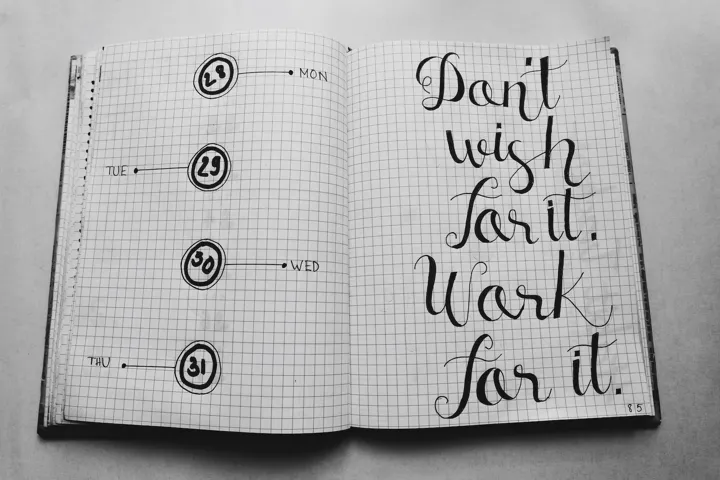 28 MON
TUE 29
30 WED
THU 31
Don't
wish
for it.
Work
for it.
85